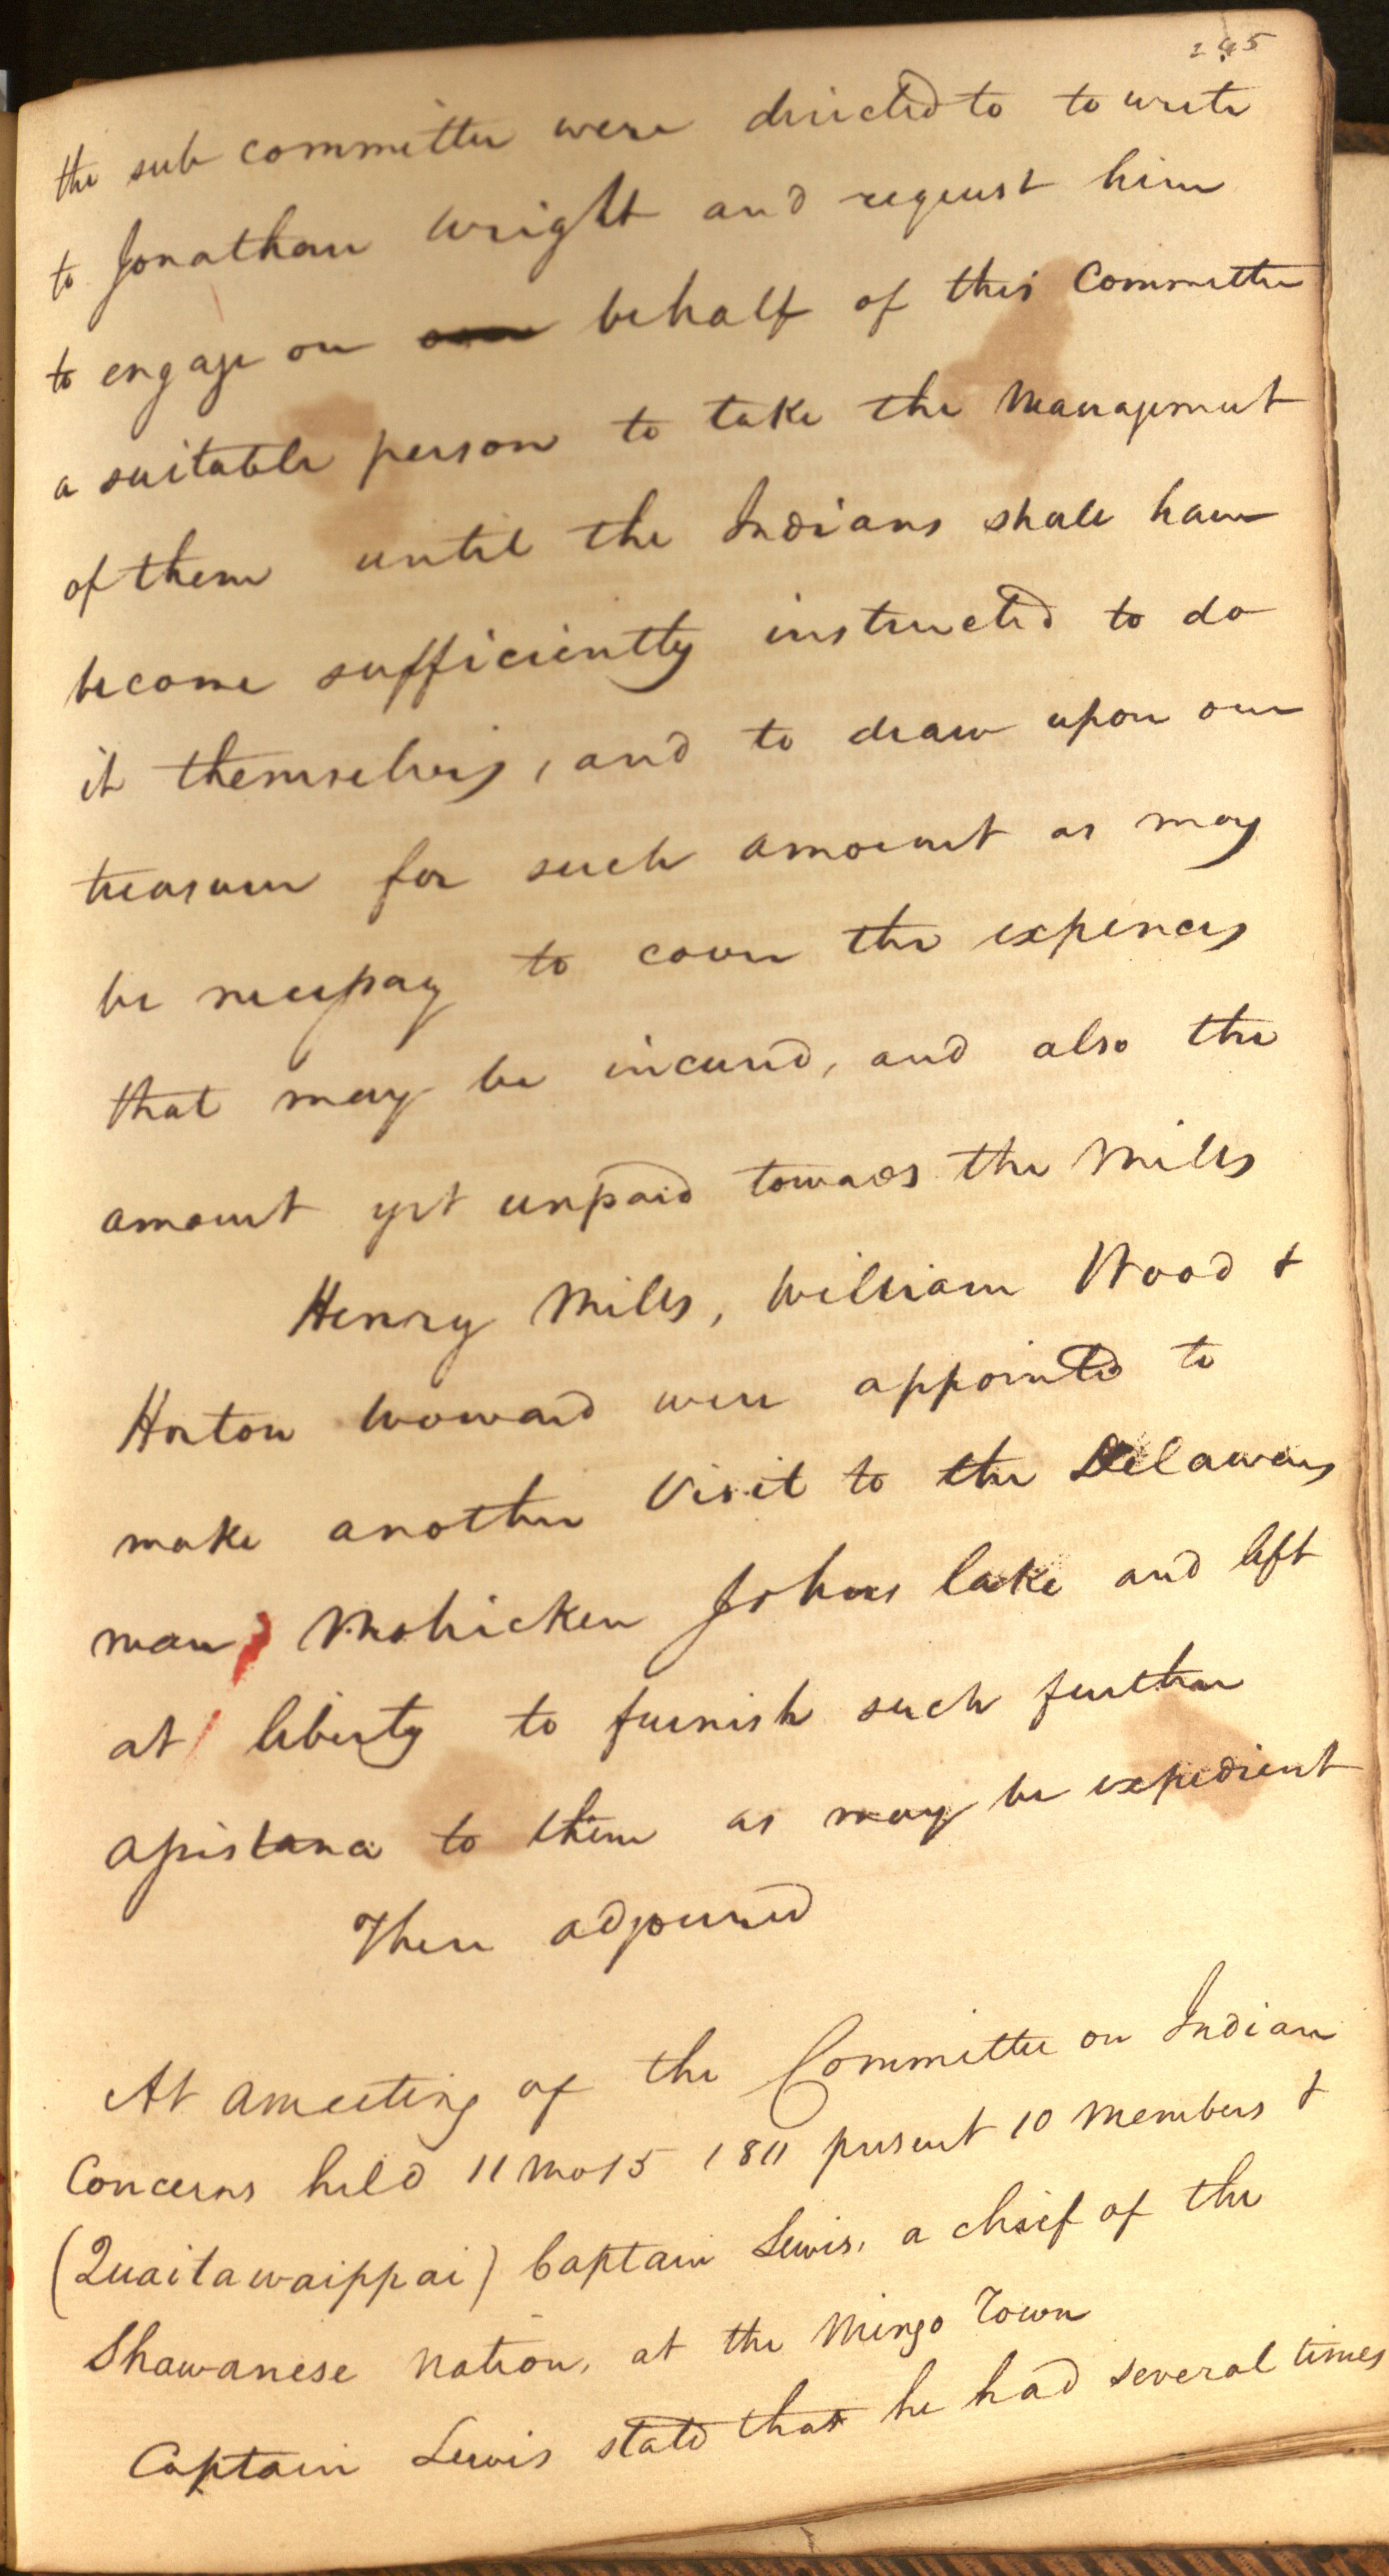 245
the sub committee were directed to to write
to Jonathan Wright and request him
to engage on behalf of this Committee
a suitable person to take the Management
of them until the Indians shall have
become sufficiently instructed to do
it themselves, and to draw upon our
treasurer for such amount as may
be necessary to cover the expences
that may be incured, and also the
amount yet unpaid towards the Mills
Henry Mills, William Wood &
Horton Howard were appointed to
make another Visit to the Delawares
near Mohicken Johns lake and left
at liberty to furnish such further
assistance to them as may be expedient
Then adjourned
At a meeting of the Committee on Indian
Concerns held 11 mo 15 1811 present 10 members &
(Quaitawaippai) Captain Lewis, a chief of the
Shawanese nation, at the Mingo Town
Captain Lewis stated that he had several times